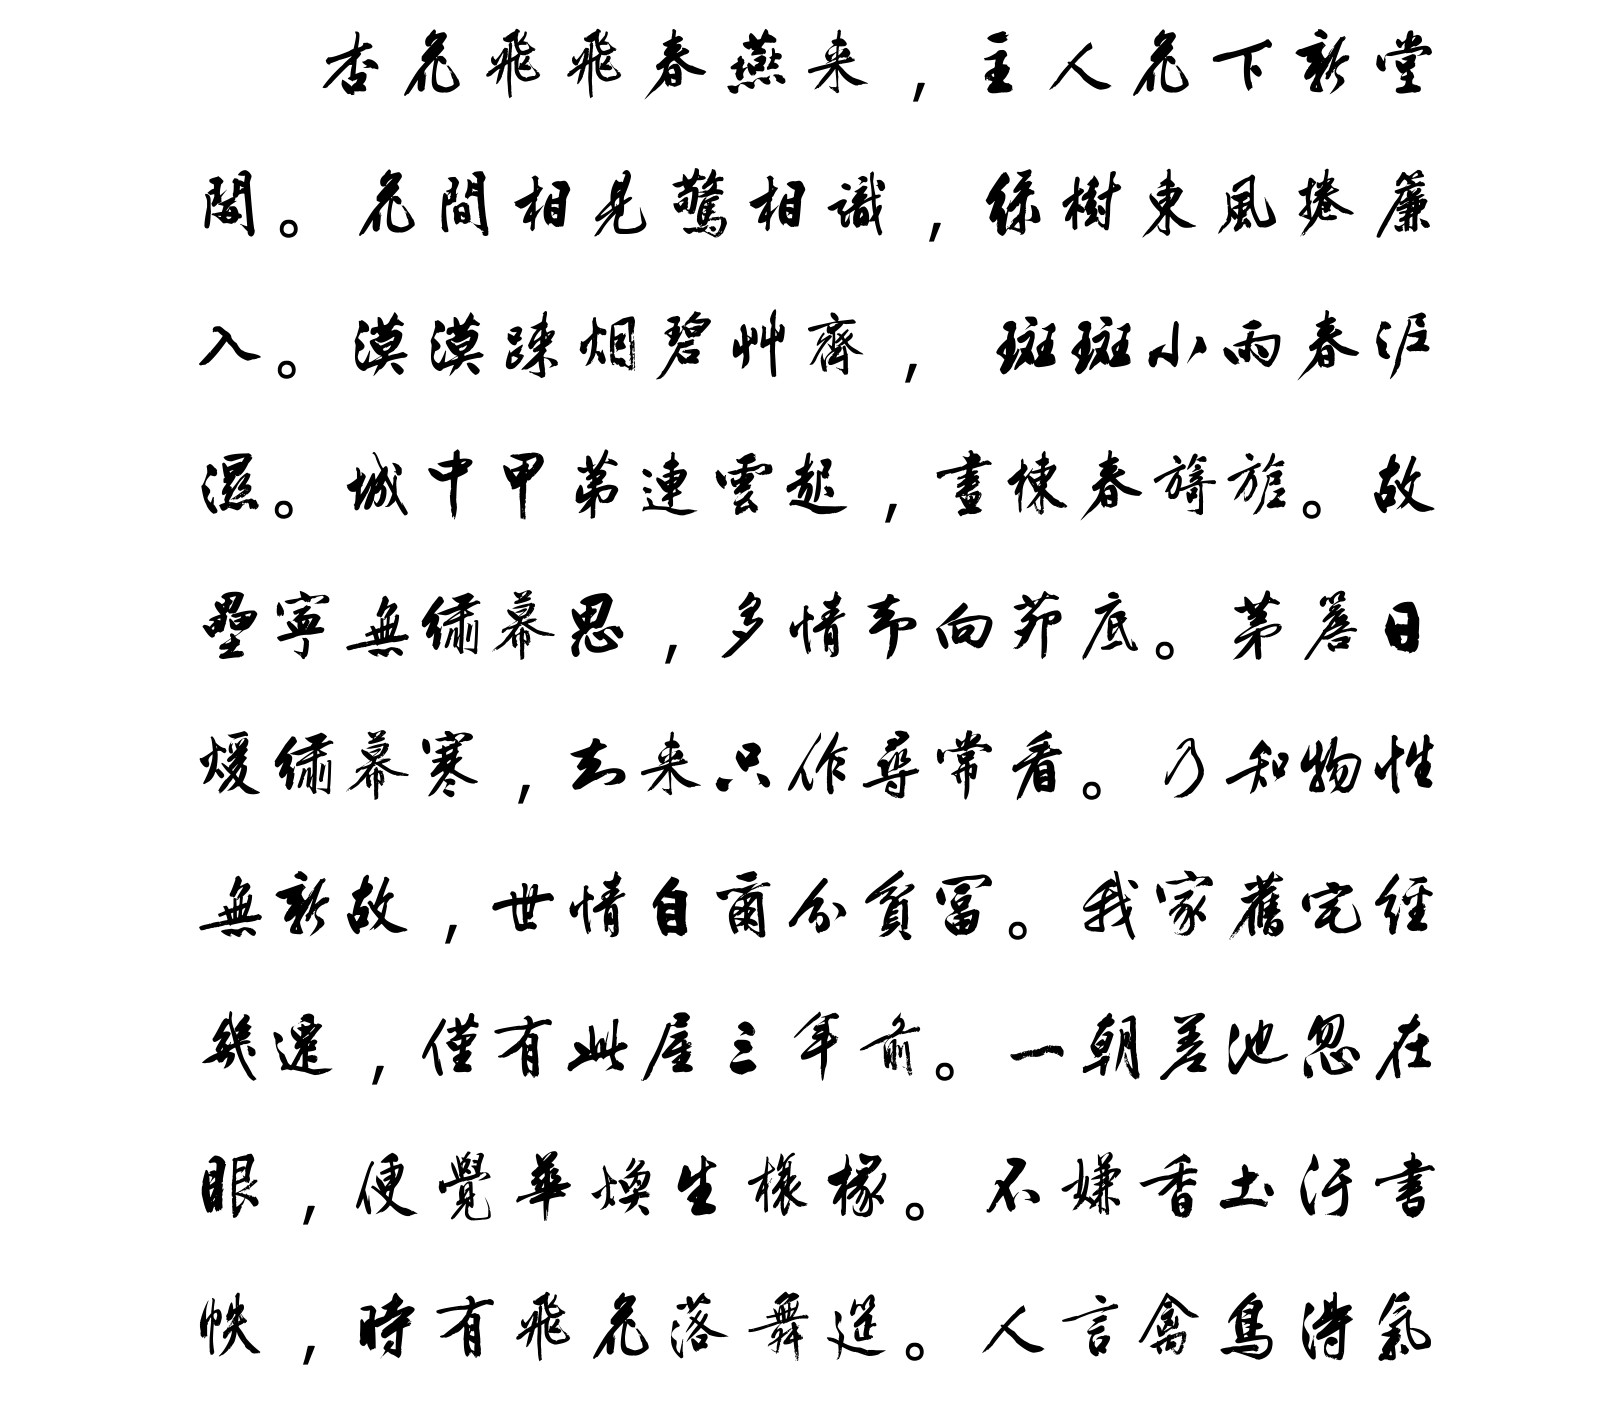 杏花飛飛春燕来，主人花下新堂
開。花間相見驚相識，綠樹東風捲簾
入。漠漠疎烟碧艸齊，斑斑小雨春泥
濕。城中甲第連雲起，畫棟春旖旎。故
壘寧無繡幕思，多情却向茆底。茅簷日
煖繡幕寒，去来只作尋常看。乃知物性
無新故，世情自爾分貧富。我家舊宅經
幾遷，僅有此屋三年前。一朝差池忽在
眼，便覺華煥生榱椽。不嫌香土汙書
帙，時有飛花落舞筵。人言禽鳥得氣